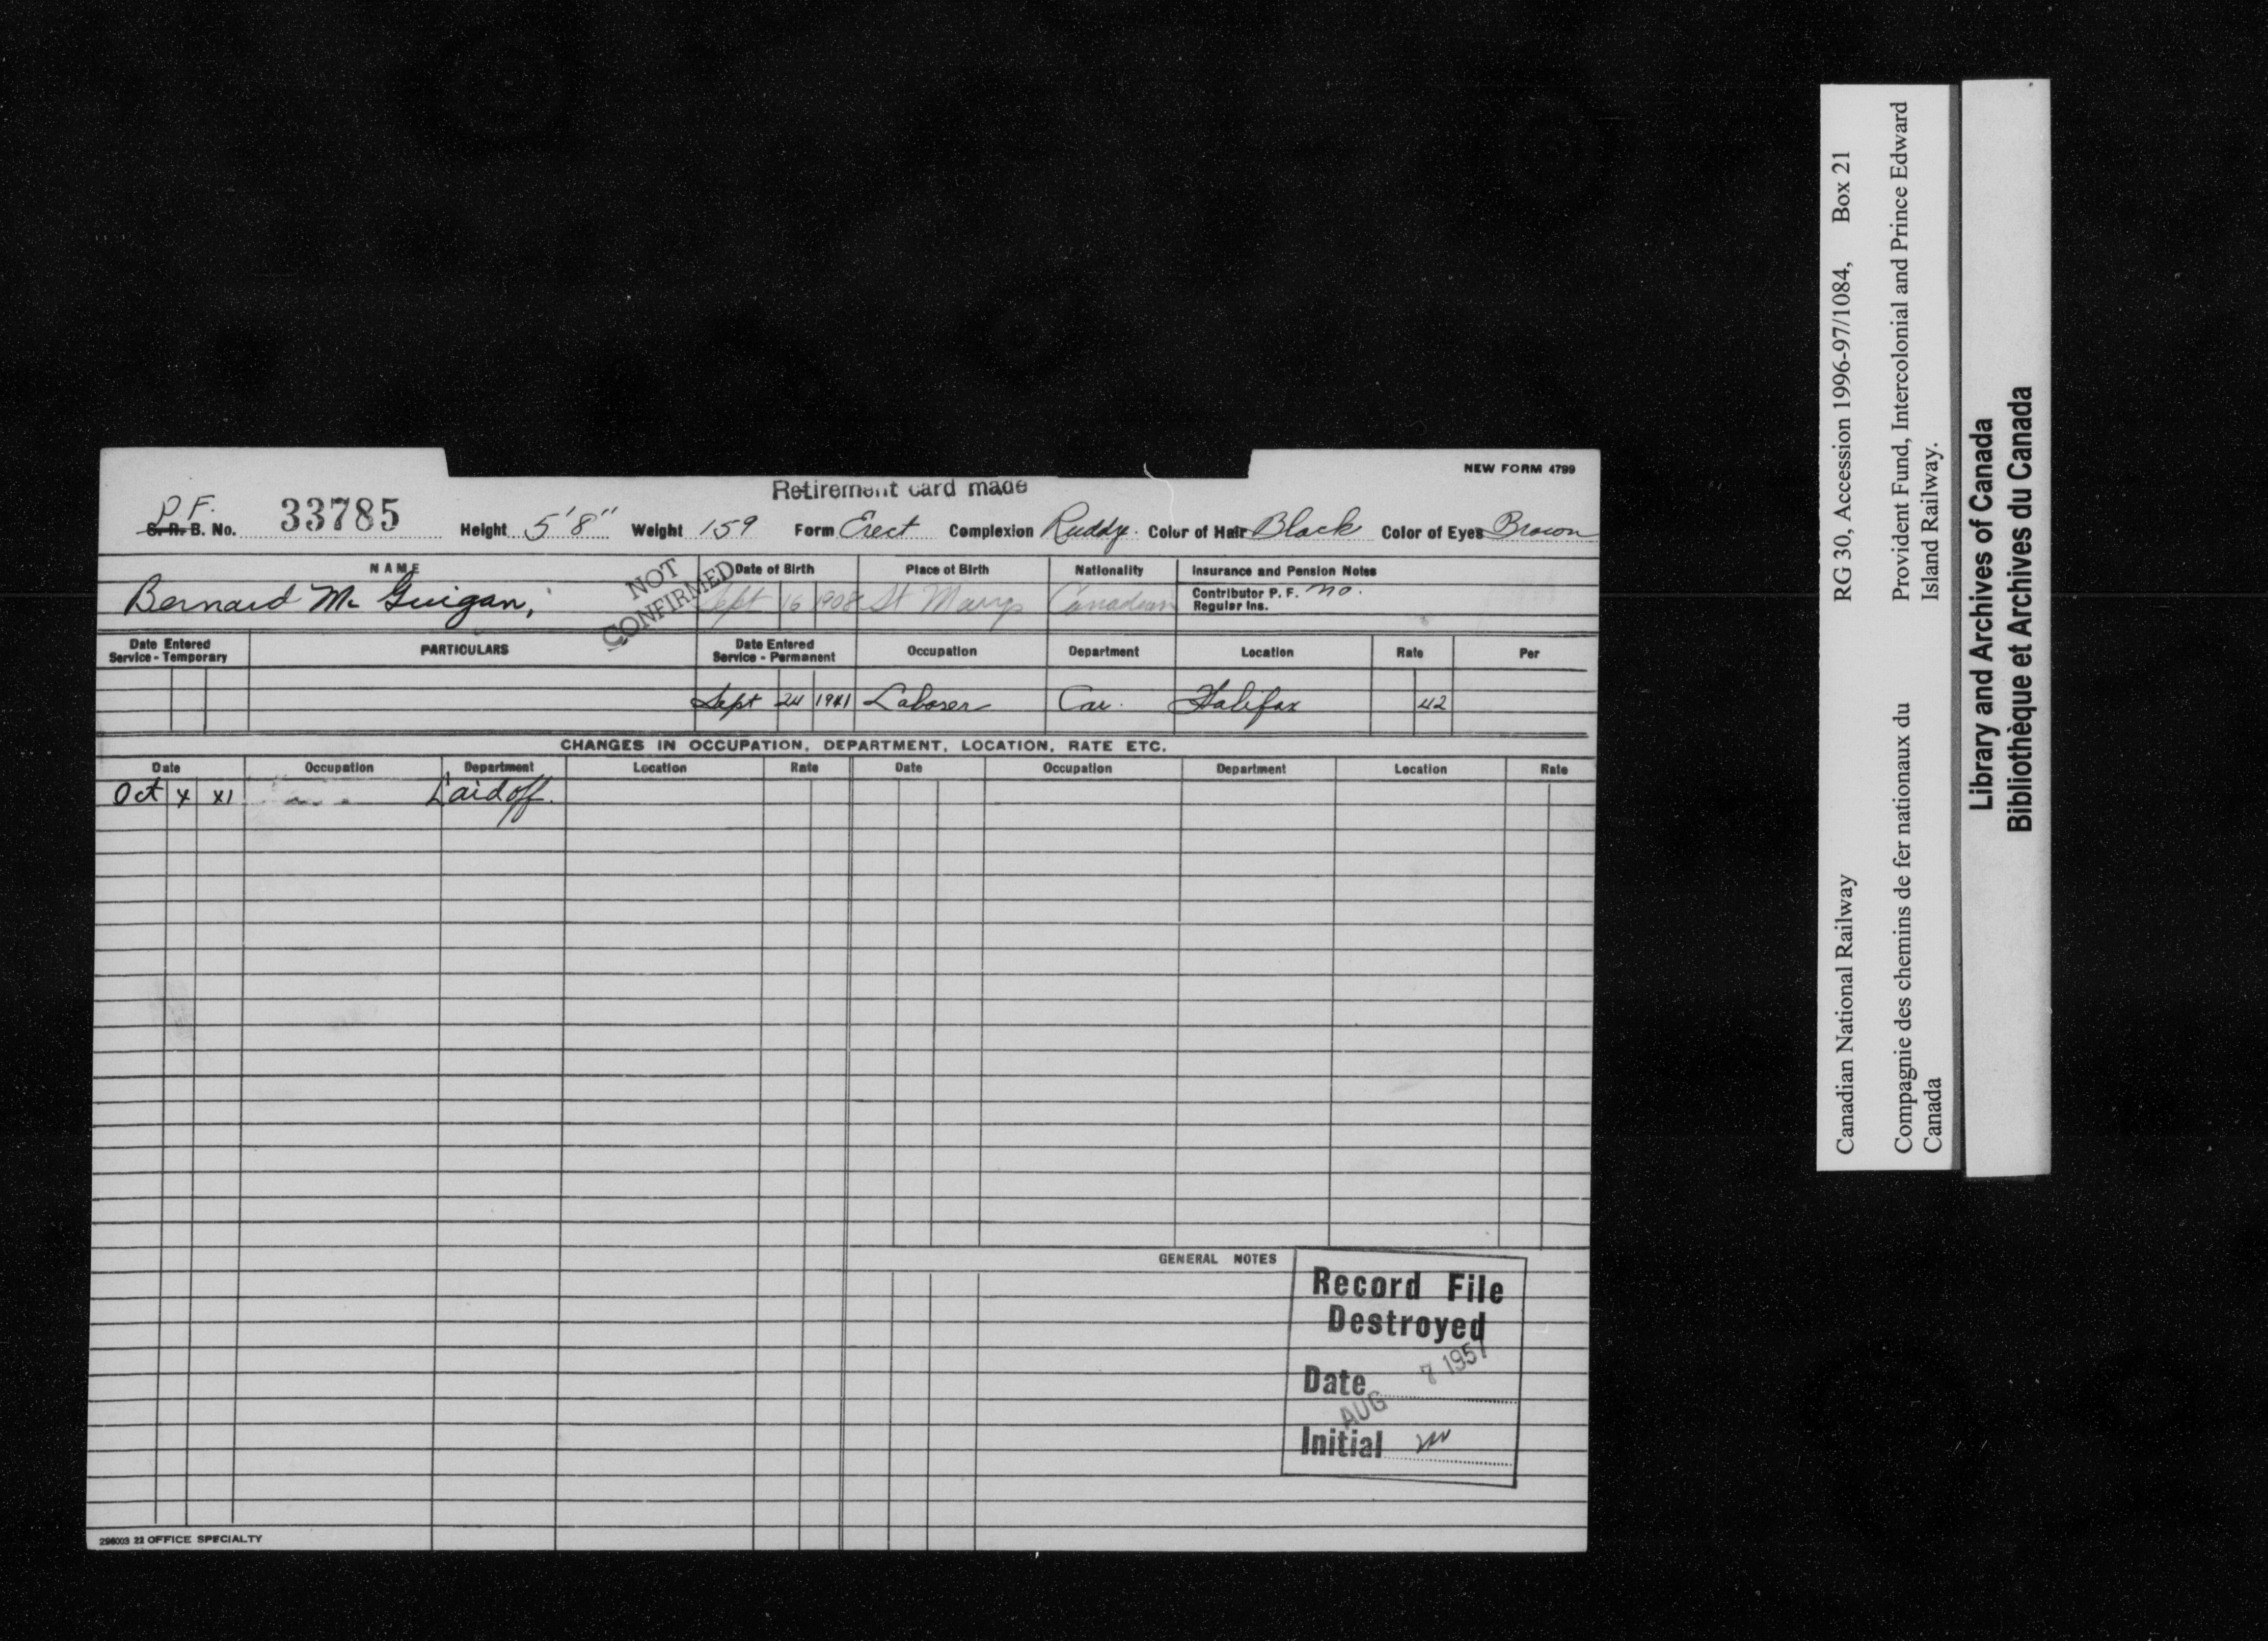 NEW FORM 4799
Retirement card made
P.F.
S. R. B. No. 33785 Height 5'8" Weight 159 Form Erect Complexion Ruddy. Color of Hair Black Color of Eyes Brown
NAME Date of Birth Place of Birth Nationality Insurance and Pension Notes
NOT CONFIRMED
Bernard Mc Guigan, Sept 16 1908 St Marys Canadian Contributor P. F. no.
Regular Ins.
Date Entered Service - Temporary PARTICULARS Date Entered Service - Permanent Occupation Department Location Rate Per
Sept 24 1941 Laborer Car. Halifax 42
CHANGES IN OCCUPATION, DEPARTMENT, LOCATION, RATE ETC.
Date Occupation Department Location Rate Date Occupation Department Location Rate
Oct 4 41 Laid off.
GENERAL NOTES
Record File
Destroyed
Date AUG 7 1957
Initial
296003 22 OFFICE SPECIALTY
Canadian National Railway RG 30, Accession 1996-97/1084, Box 21
Compagnie des chemins de fer nationaux du Canada
Provident Fund, Intercolonial and Prince Edward Island Railway.
Library and Archives of Canada
Bibliothèque et Archives du Canada